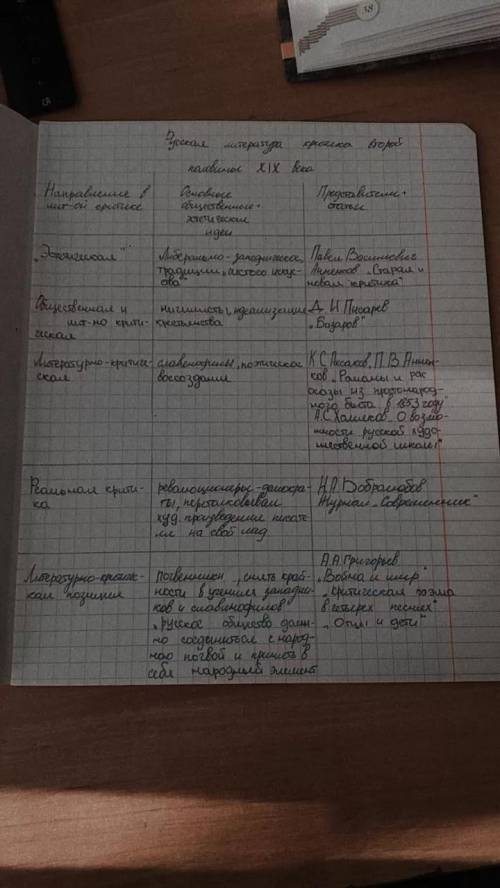 Русская литература критика второй
половины XIX века
Направление в
лит-ой критике
Основное
общественно-
эстетические
идеи
Представители,
статьи
"Эстетическая"
Либерально-западнические
традиции, "чистого искус-
ства"
Павел Васильевич
Анненков "Старая и
новая критика"
Общественная и
лит-но крити-
ческая
нигилисты, идеализация
крестьянства
Д. И Писарев
"Базаров"
Литературно-критиче-
ская
славянофилы, поэтическое
воссоздание
К.С.Аксаков, П.В.Аннен-
ков "Романы и рас
сказы из простонарод-
ного быта в 1853 году"
А.С.Хомяков "О возмо-
жности русской худо-
жественной школы"
Реальная крити-
ка
революционеры-демокра-
ты, перетолковывал
худ. произведения писате
ля на свой лад
Н.А.Добролюбов
Журнал "Современник"
Литературно-критиче-
кая позиция
почвенники, снять край-
ности в учениях западни-
ков и славянофилов
"русское общество долж-
но соединиться с народ-
ною почвой и принять в
себя народный элемент
А.А.Григорьев
"Война и мир"
"критическая поэма
в четырех песнях"
"Отцы и дети"